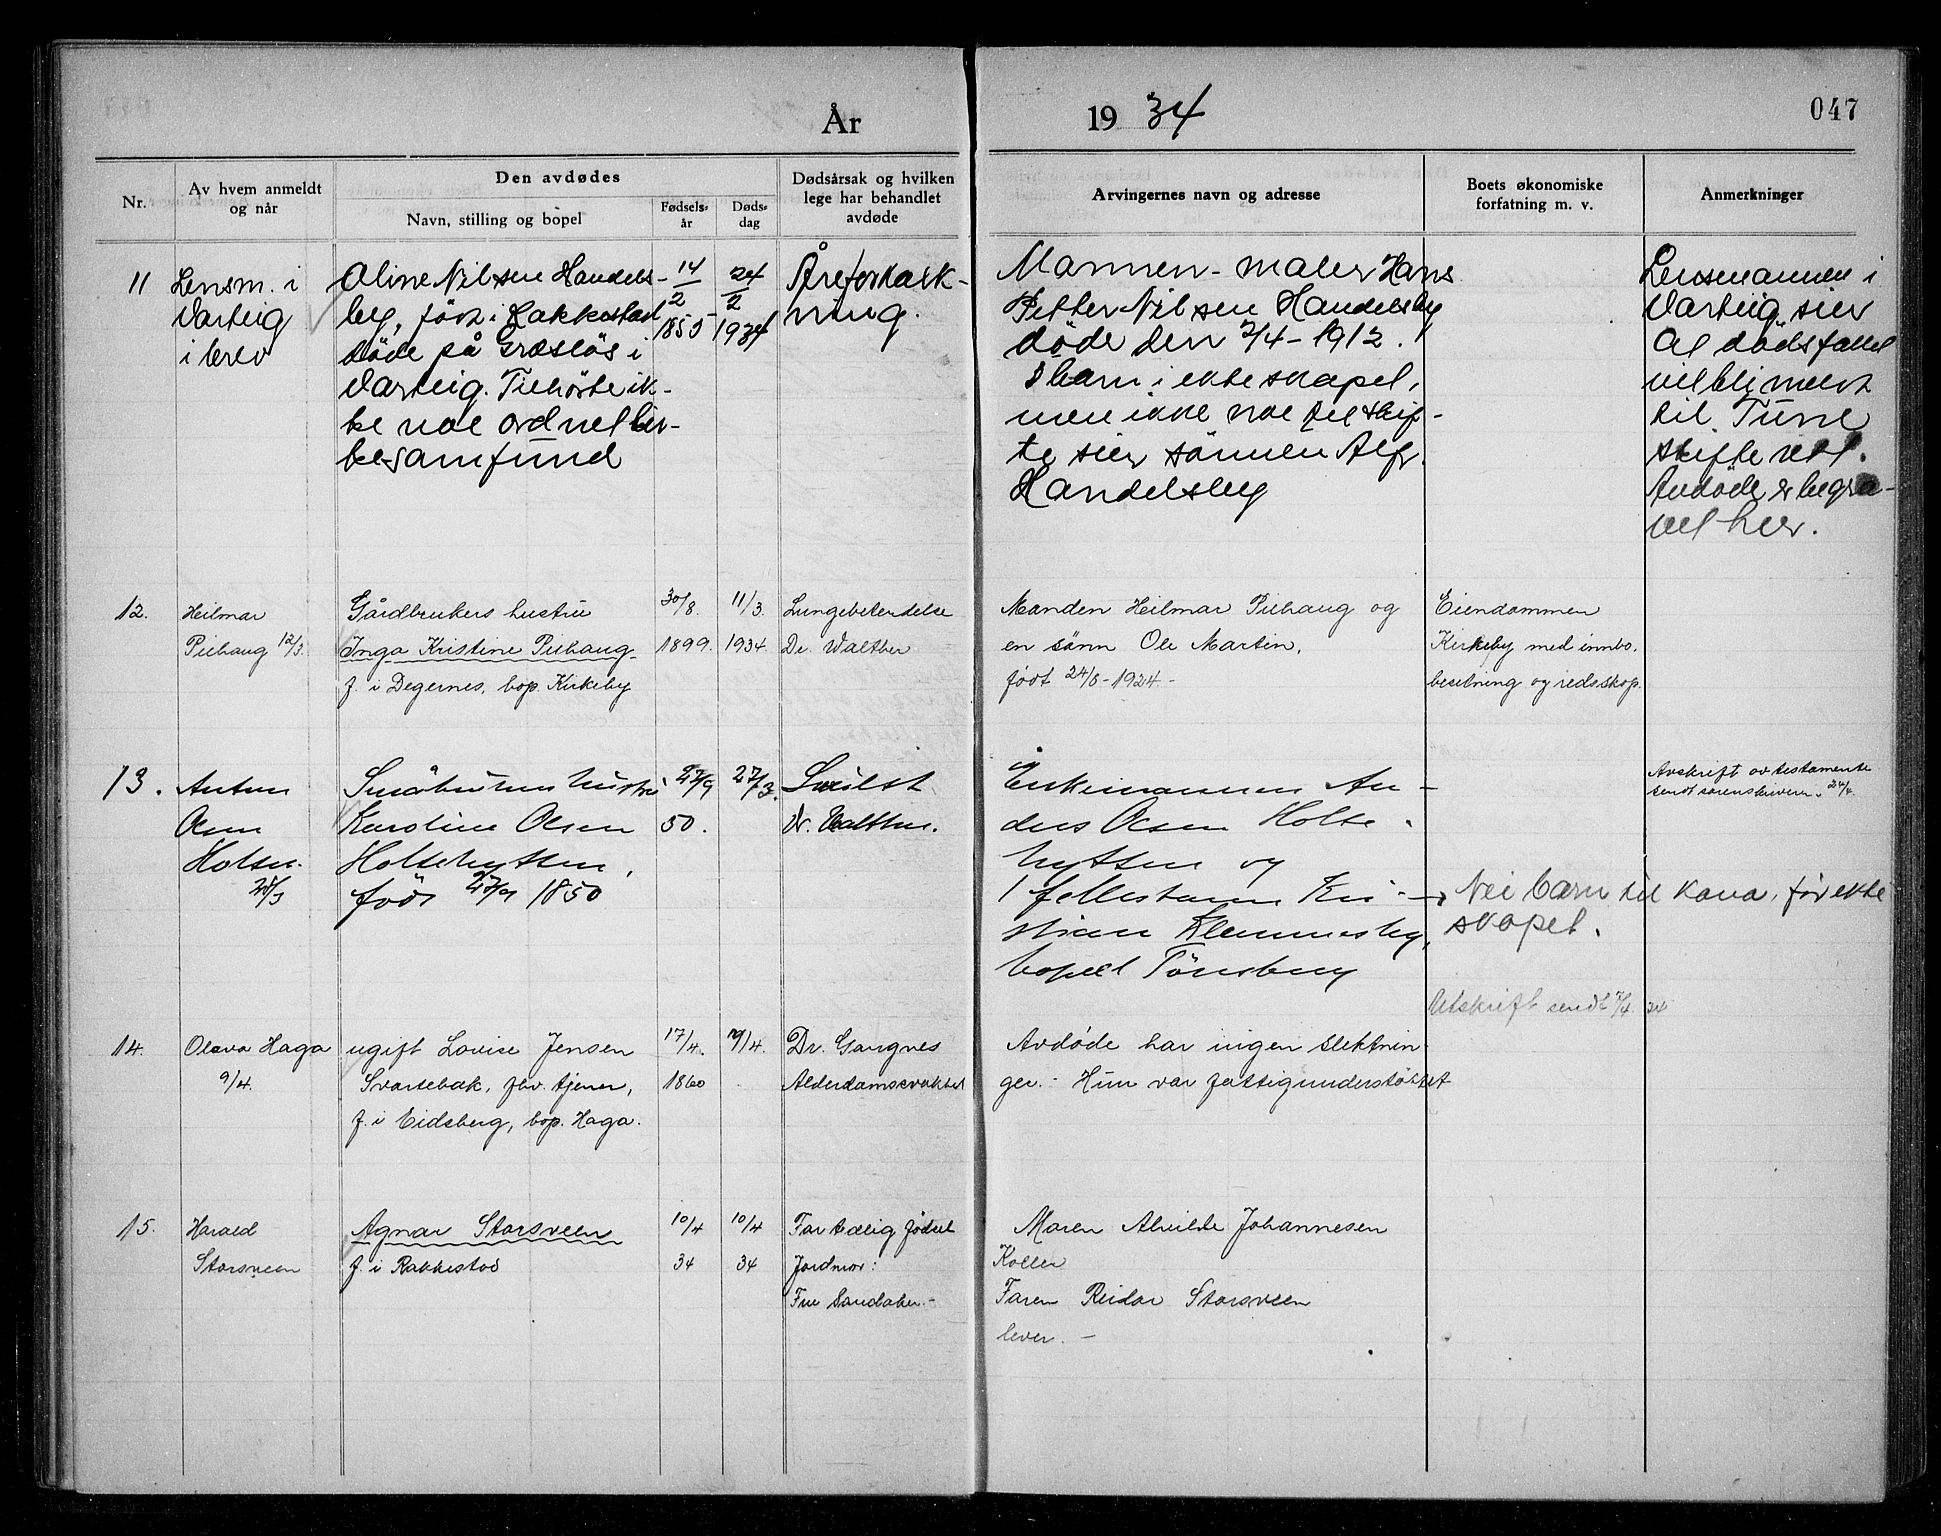 År 1934
047
Nr.
Av hvem anmeldt
og når
Den avdødes
Navn, stilling og bopel
Fødsels-
år
Døds-
dag
Dødsårsak og hvilken
lege har behandlet
avdøde
Arvingernes navn og adresse
Boets økonomiske
forfatning m. v.
Anmerkninger
11
Lensm. i
Varteig
i brev
Oline Nilsen Handels-
by, født i Rakkestad
døde på Græsløs i
Varteig. Tilhörte ik-
ke noe ordnet kir-
kesamfund
14/2
1855
24/2
1934
Åreforkalk-
ning.
Mannen - maler Hans
Petter Nilsen Handelsby
døde den 2/4-1912.
barn i ekteskapet,
men ikke noe til skif-
te sier sönnen Alfr.
Handelsby
Lensmannen i
Varteig sier
at dödsfallet
vil bli meldt
til Tune
skifterett.
Avdöde er begra-
vet her.
12.
Heilmar
Piehaug 12/3.
Gårdbrukers hustru
Inga Kristine Piehaug
f. i Degernes, bop. Kirkeby
30/8.
1899.
11/3.
1934.
Lungebetendelse
Dr. Walther
Manden Heilmar Piehaug og
en sönn Ole Martin,
født 24/8-1924-
Eiendommen
Kirkeby med innbo,
besetning og redskap.
13.
Anton
Olsen
Holsen.
28/3
Småbrukers hustru
Karoline Olsen
Holtehytten,
född 27/9 1850
27/9
50.
27/3.
Dr. Walther.
Enkemannen An-
ders Olsen Holte-
hytten og
1 fellesbarn Kri-
stian Klemmesby,
bopæl Tönsberg
Nei barn til kona, før ekte
skapet.
Avskrift av testamente
sendt sorenskriveren 24/4.
Utskrift sendt 7/4. 34
14.
Olava Haga
9/4.
ugift Lovise Jensen
Svartebæk, fhv. tjener,
f. i Eidsberg, bop. Haga.
17/4.
1860
9/4.
Dr. Gangnes
Alderdomssvakhet
Avdøde har ingen slektnin-
ger. - Hun var fattigunderstöttet
15.
Harald
Storsveen
Agnar Storsveen
f. i Rakkestad
10/4
34
10/4
34
For tidlig födsel
Jordmor:
Fru Sandaker.-
Maren Alvilde Johannesen
Koller
Faren Reidar Storsveen
lever. -